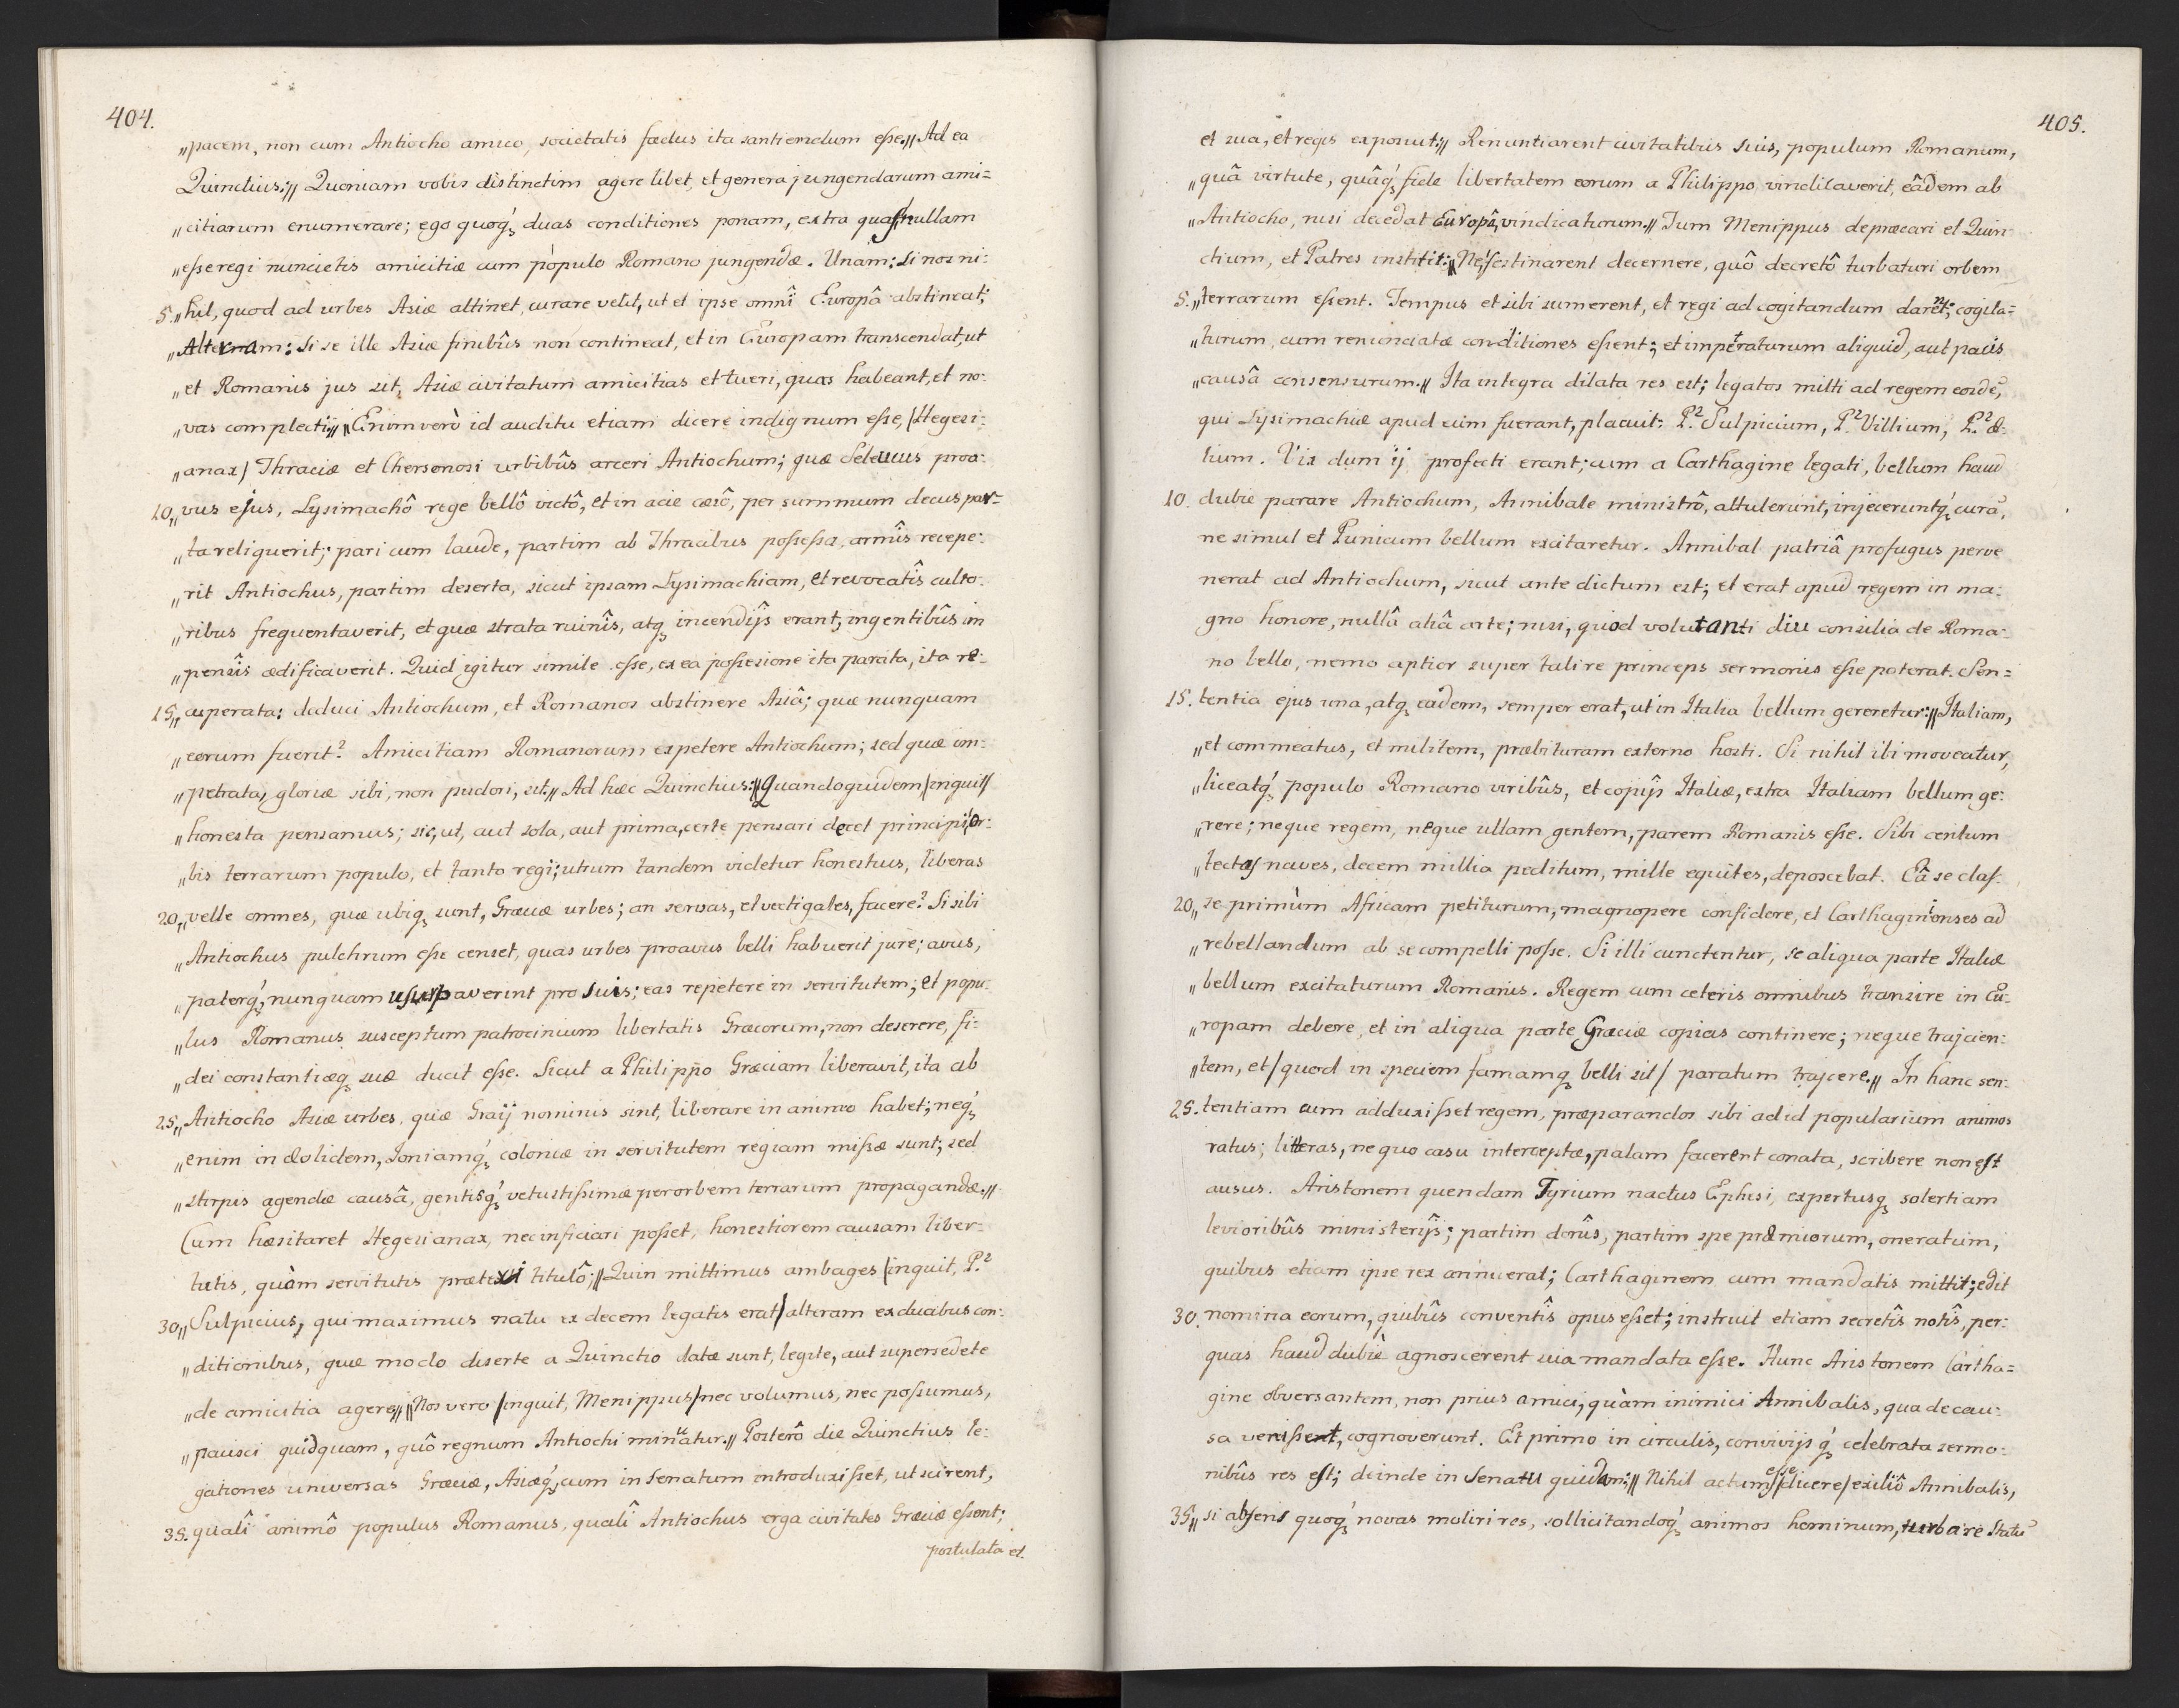 404.
„pacem, non cum Antiocho amico, societatis fœdus ita santiendum eſse.„ Ad ea
Quinctius:„ Quoniam vobis distinctim agere libet, et genera jungendarum ami=
„citiarum enumerare; ego quoq́ꝫ duas conditiones ponam, extra quaſ nullam
„eſse regi nuncietis amicitiæ cum pòpulo Romano jungendæ. Unam: Si nos ni:
5.„hil, quod ad urbes Asiæ attinet, curare velit, ut et ipse omnî Europâ abstineat;
„Alteram: Si se ille Asiæ finibûs non contineat, et in Europam transcendat, ut
„et Romanis jus sit, Asiæ civitatum amicitias et tueri, quas habeant, et no:
„vas complecti„ „Enimverò id auditu etiam dicere indignum eſse, /Hegesi:
„anax/ Thraciæ et Chersonesi urbibûs arceri Antiochum; quæ Seleucus proa:
10.„vus ejus, Lysimachô rege bellô victô, et in acie cæsô, per summum decus par=
„ta reliquerit; pari cum laude, partim ab Thracibus poſseſsa, armîs recepe:
„rit Antiochus, partim deserta, sicut ipsam Lysimachiam, et revocatîs culto:
„ribus frequentaverit, et quæ strata ruinîs, atqꝫ incendijs erant, ingentibûs im
„pensîs ædificaverit. Quid igitur simile eſse, ex ea poſseſsione ita parata, ita re:
15.„cuperata: deduci Antiochum, et Romanos abstinere Asiâ; quæ nunquam
„eorum fuerit? Amicitiam Romanorum expetere Antiochum; sed quæ im:
„petrata, gloriæ sibi, non pudori, sit.„ Ad hæc Quinctius:„ Quandoquidem /inquit/
„honesta pensamus; sic, ut, aut sola, aut prima, certe pensari decet principi or:
„bis terrarum populo, et tanto regi; utrum tandem videtur honestius, liberas
20.„velle omnes, quæ ubiqꝫ sunt, Græcæ urbes; an servas, et vectigales, facere? Si sibi
„Antiochus pulchrum eſse censet, quas urbes proavus belli habuerit jure; avus,
„paterq́ꝫ, nunquam usurpaverint pro suis; eas repetere in servitutem; et popu:
„lus Romanus susceptum patrocinium libertatis Græcorum, non deserere, fi:
„dei constantiæqꝫ suæ ducit eſse. Sicut a Philippo Græciam liberavit, ita ab
25.„Antiocho Asiæ urbes, quæ Graij nominis sint, liberare in animo habet; neq́ꝫ
„enim in Æolidem, Joniamq́ꝫ coloniæ in servitutem regiam miſsæ sunt; sed
„stirpis agendæ causâ, gentisq́ꝫ vetustiſsimæ per orbem terrarum propagandæ.„
Cum hæsitaret Hegesianax, nec inficiari poſset, honestiorem causam liber:
tatis, quàm servitutis prætexi titulô;„ Quin mittimus ambages /inquit, P.²
30.„Sulpicius, qui maximus natu ex decem legatis erat/ alteram ex ducibus con:
„ditionibus, quæ modo diserte a Quinctio datæ sunt, legite, aut supersedete
„de amicitia agere„ „Nos vero /inquit, Menippus/ nec volumus, nec poſsumus,
„pacisci quidquam, quô regnum Antiochi minuatur.„ Posterô die Quinctius le:
gationes universas Græciæ, Asiæq́ꝫ, cum in senatum introduxiſset, ut scirent,
35. qualî animô populus Romanus, qualî Antiochus erga civitates Græciæ eſsent;
postulata et.
405.
et sua, et regis exposuit:„ Renuntiarent civitatibus suis, populum Romanum,
„quâ virtute, quâq́ꝫ fide libertatem eorum a Philippo vindicaverit, eâdem ab
„Antiocho, nisi decedat Europâ, vindicaturum.„ Tum Menippus depræcari et Quin:
ctium, et Patres institit:„ Ne festinarent decernere, quô decretô turbaturi orbem
5.„terrarum eſsent. Tempus et sibi sumerent, et regi ad cogitandum darent; cogita=
„turum, cum renunciatæ conditiones eſsent; et impetraturum aliquid, aut pacis
„causâ censensurum.„ Ita integra dilata res est; legatos mitti ad regem eosdē,
qui Lysimachiæ apud eum fuerant, placuit: P.² Sulpicium, P.² Villium, P.² Æ:
lium. Vix dum ij profecti erant; cum a Carthagine legati, bellum haud
10. dubie parare Antiochum, Annibale ministrô, attulerunt, injeceruntq́ꝫ curā,
ne simul et Punicum bellum excitaretur. Annibal patriâ profugus perve
nerat ad Antiochum, sicut ante dictum est; et erat apud regem in ma:
gno honore, nullâ aliâ arte; nisi, quod volutanti diu consilia de Roma:
no bello, nemo aptior super tali re princeps sermonis eſse poterat. Sen=
15. tentia ejus una, atqꝫ eadem, semper erat, ut in Italia bellum gereretur:„ Italiam,
„et commeatus, et militem, præbituram externo hosti. Si nihil ibi moveatur,
„liceatq́ꝫ populo Romano viribûs, et copijs Italiæ, extra Italiam bellum ge:
„rere; neque regem, neque ullam gentem, parem Romanis eſse. Sibi centum
„tectas naves, decem millia peditum, mille equites, deposcebat. Eâ se claſ:
20.„se primùm Africam petiturum, magnopere confidere, et Carthaginienses ad
„rebellandum ab se compelli poſse. Si illi cunctentur, se aliqua parte Italiæ
„bellum excitaturum Romanis. Regem cum ceteris omnibus transire in Eu:
„ropam debere, et in aliqua parte Græciæ copias continere; neque trajcien:
„tem, et /quod in speciem famamqꝫ belli sit/ paratum trajcere.„ In hanc sen:
25. tentiam cum adduxiſset regem, præparandos sibi ad id popularium animos
ratus; litteras, ne quo casu interceptæ, palam facerent conata, scribere non est
ausus. Aristonem quendam Tyrium nactus Ephesi, expertusqꝫ solertiam
levioribûs ministerijs; partim donîs, partim spe præmiorum, oneratum,
quibus etiam ipse rex annuerat; Carthaginem cum mandatis mittit; edit
30. nomina eorum, quibûs conventîs opus eſset; instruit etiam secretîs notîs, per:
quas haud dubiè agnoscerent sua mandata eſse. Hunc Aristonem Cartha=
gine obversantem, non prius amici, quàm inimici Annibalis, qua de cau:
sa veniſset, cognoverunt. Et primo in circulis, convivijsq́ꝫ celebrata sermo:
nibûs res est; deinde in senatu quidam:„ Nihil actum esse /dicere/ exiliô Annibalis,
35.„si absens quoq́ꝫ novas moliri res, sollicitandoq́ꝫ animos hominum, turbare statū